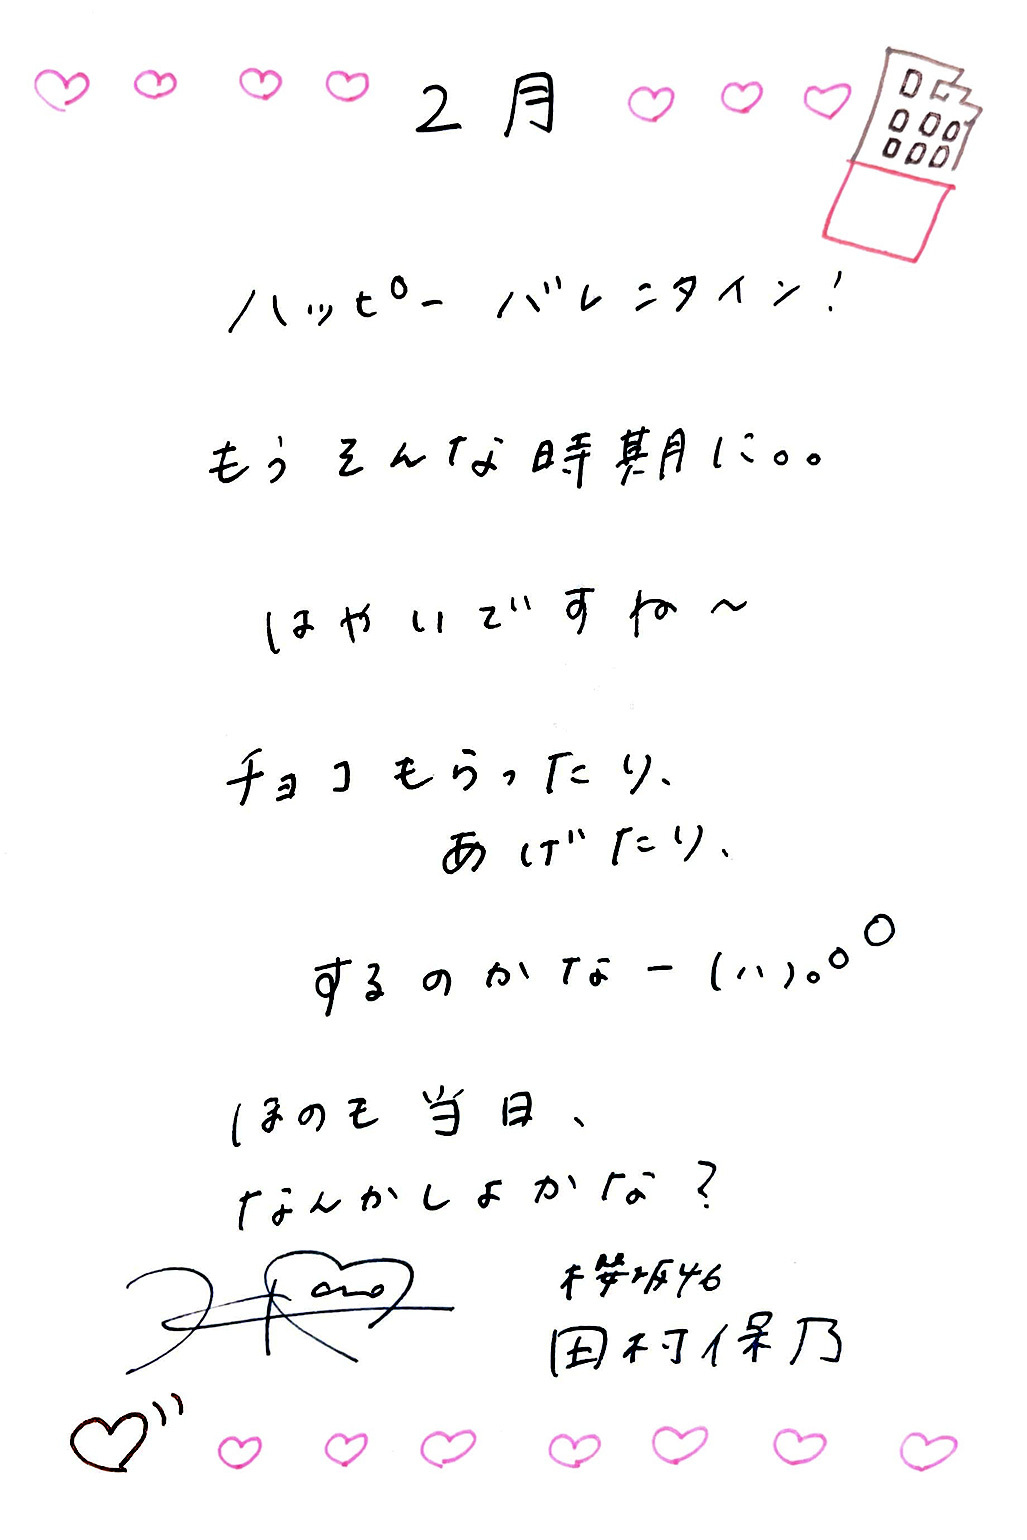 2月
ハッピー バレンタイン!
もうそんな時期に。。
はやいですね〜
チョコもらったり、
あげたり、
するのかなー(ハ)。
ほのも当日、
なんかしよかな?
櫻坂46
田村保乃